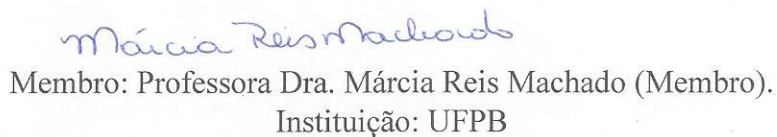 Márcia Reis Machado
Membro: Professora Dra. Márcia Reis Machado (Membro).
Instituição: UFPB